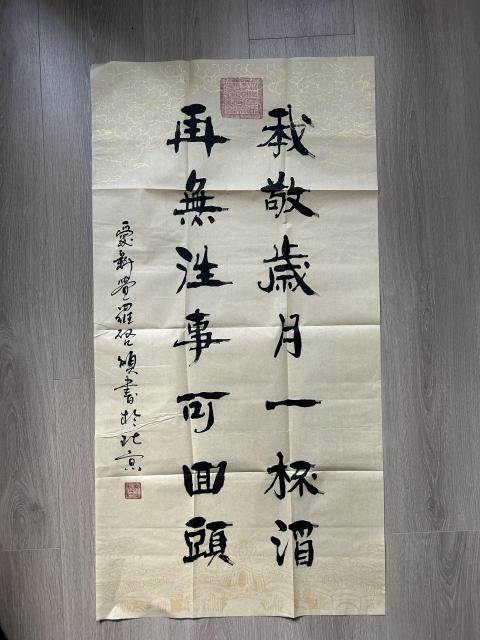 我敬歲月一杯酒
再無往事可回頭
愛新覺羅啓書於北京